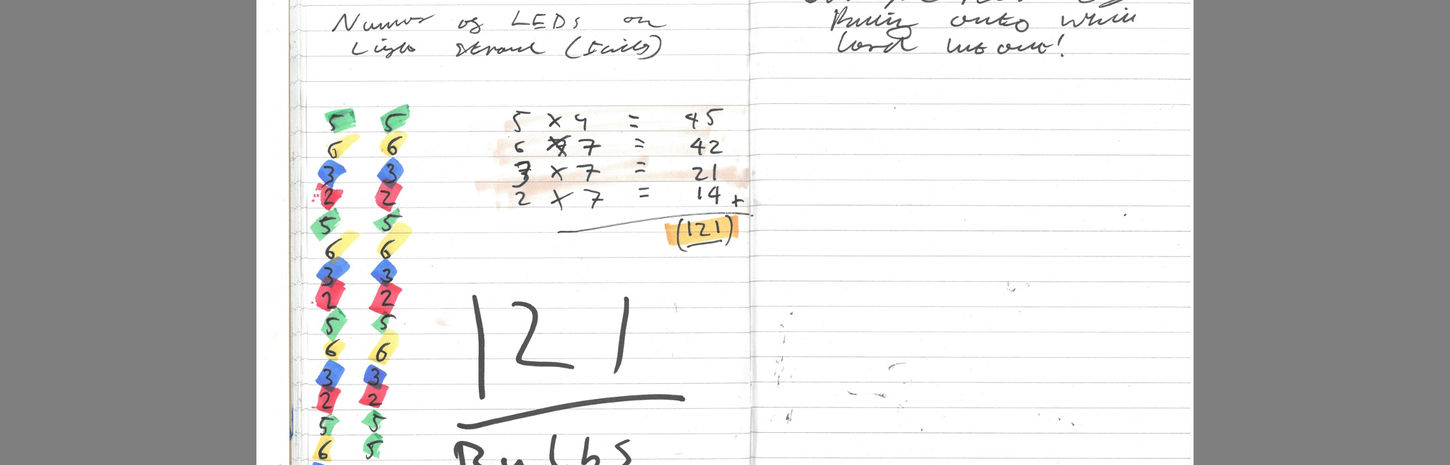 Number of LEDs on
Light strand
5 5
6 6
3 3
2 2
5 5
6 6
3 3
2 2
5 5
6 6
3 3
2 2
5 5
6 5
5 x 9 = 45
6 x 7 = 42
3 x 7 = 21
2 x 7 = 14 +
(121)
121
Bulbs
onto while
out!